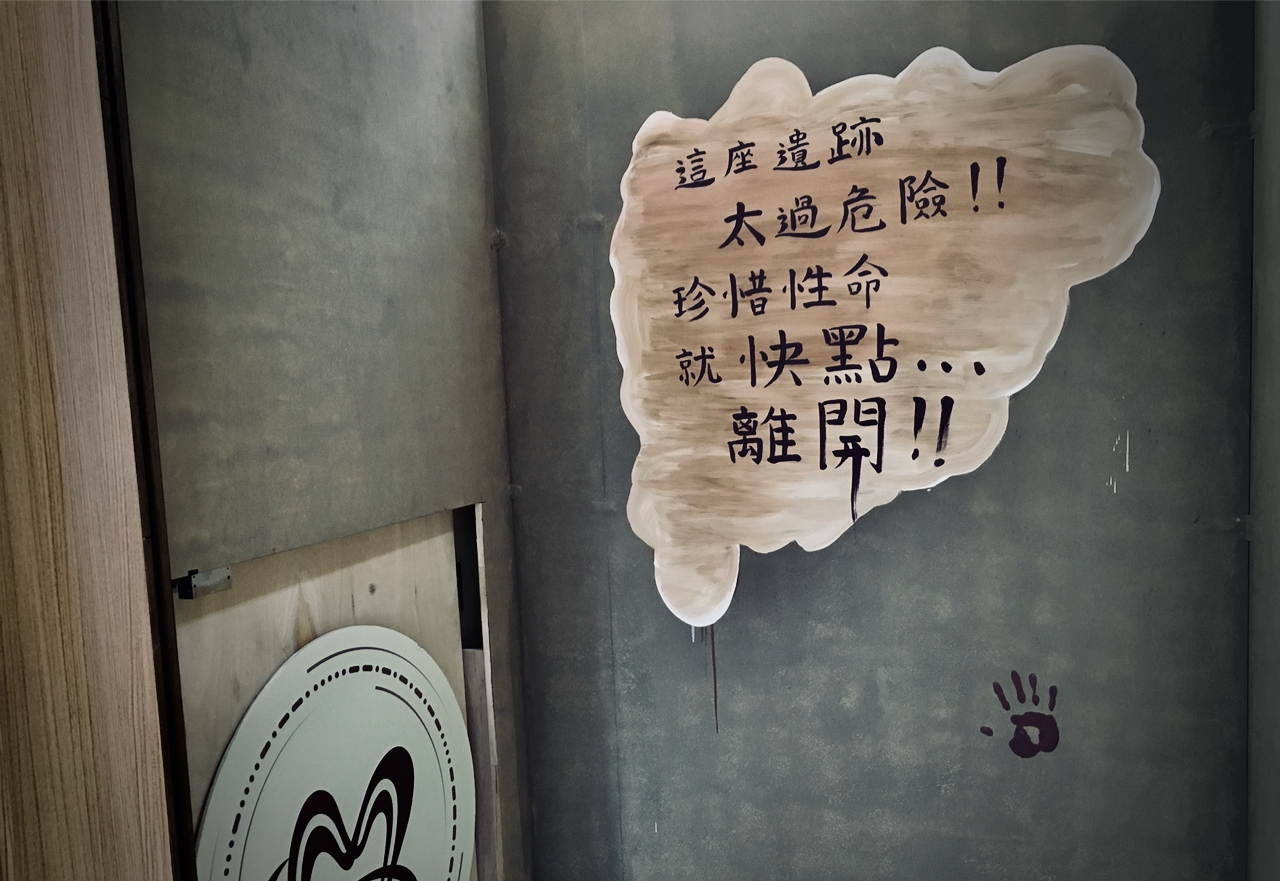 這座遺跡
太過危險!!
珍惜性命
就快點...
離開!!